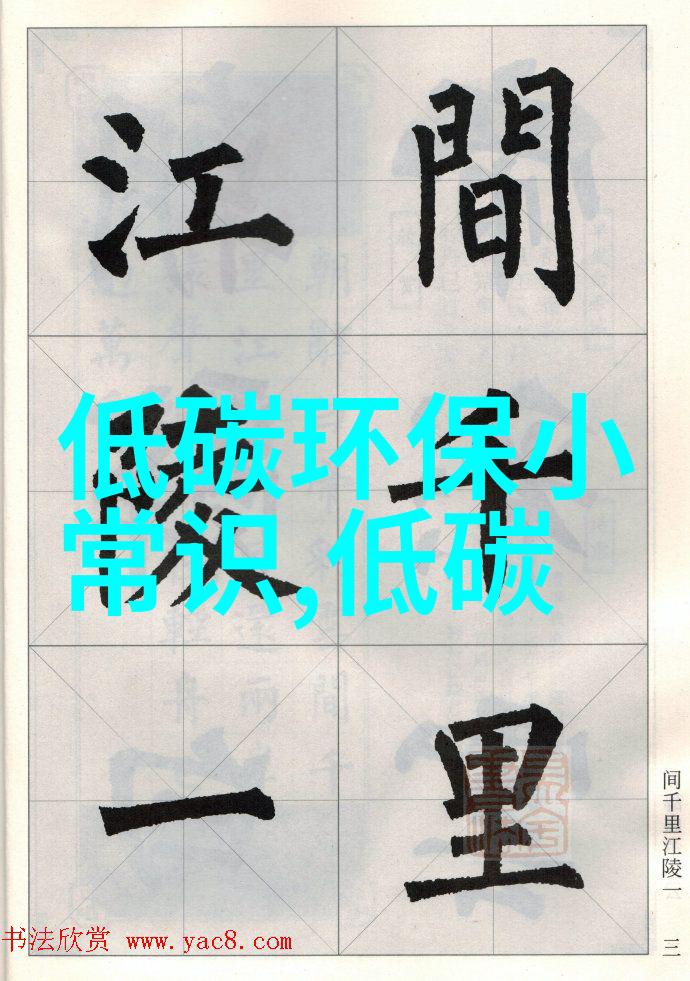 間
千
里
江
陵
一
低碳环保小
常识,低碳
间千里江陵一
三
书法欣赏 www.yac8.com